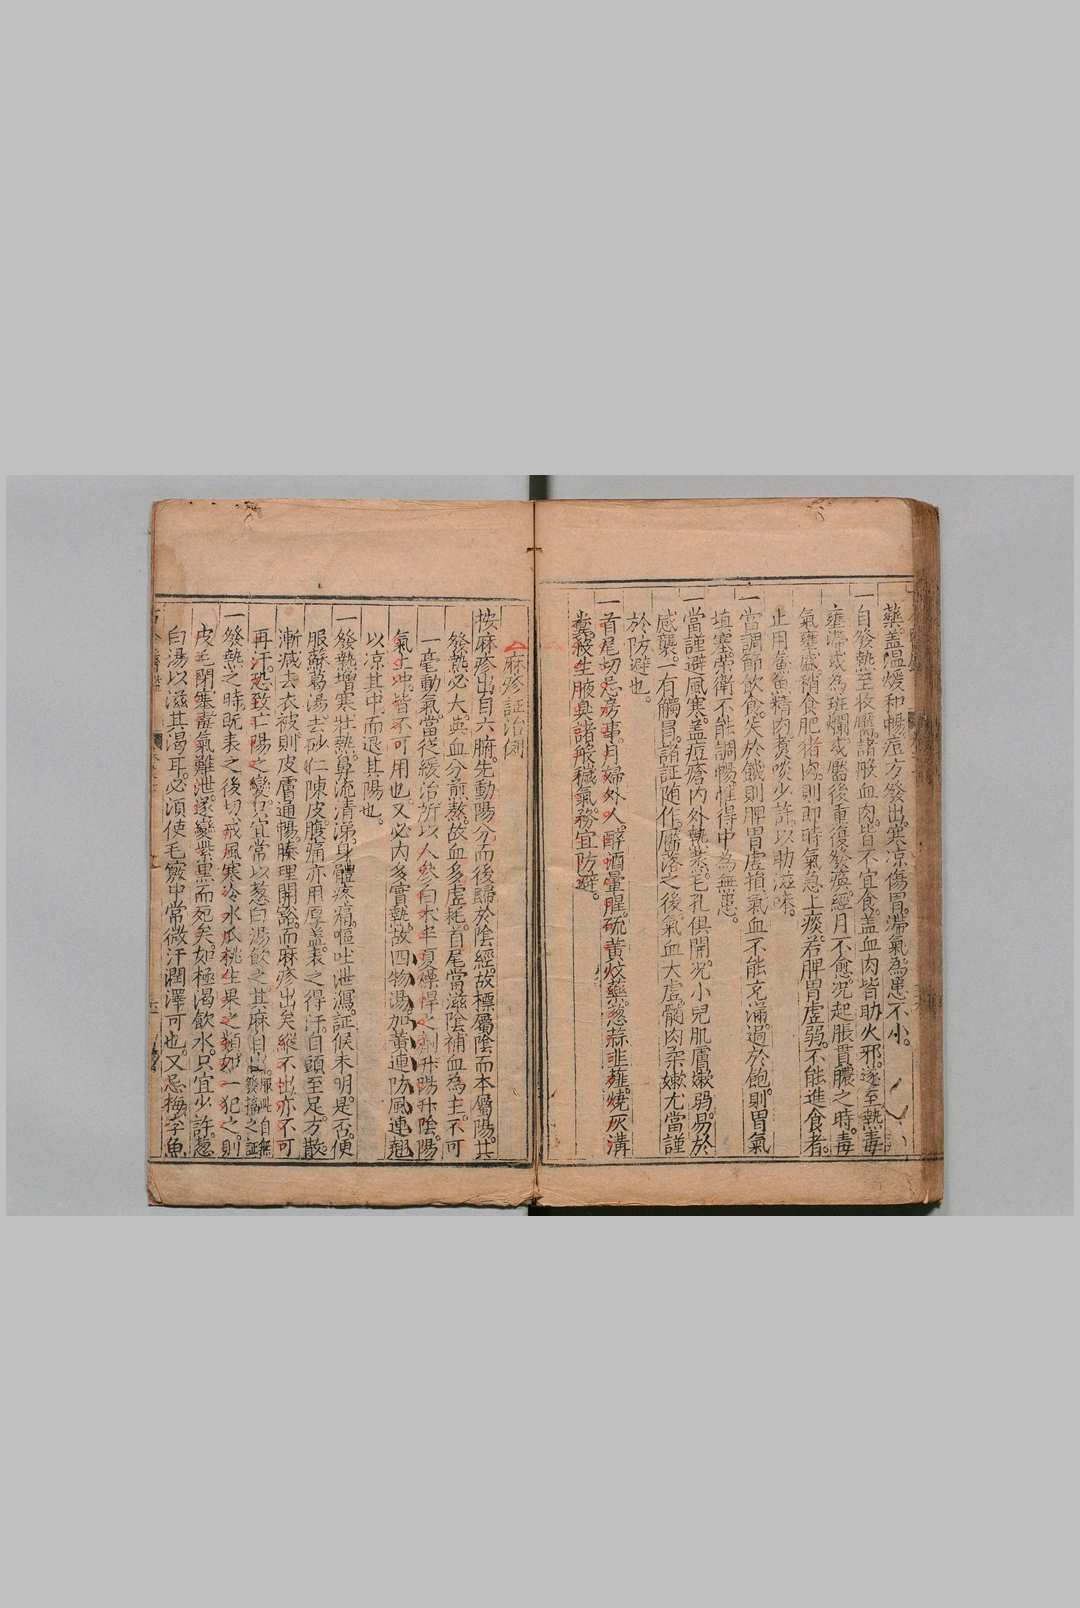 藥蓋溫煖和暢痘方發出寒凉傷胃滯氣為患不小。
一自發熱至收靨諸般血肉皆不宜食蓋血肉皆助火邪遂至熱毒
壅滯或為斑爛或靨後重復發瘼經月不愈况起脹貫膿之時毒
氣壅盛稍食肥猪肉則即時氣急上痰若脾胃虛弱不能進食者
止用鯗魚精肉煑啖少許以助滋味。
一當調節飲食失於饑則脾胃虛損氣血不能充滿過於飽則胃氣
填塞榮衛不能調暢惟得中為無患。
一當謹避風寒蓋痘瘡內外熱蒸毛孔俱開况小兒肌膚嫰弱易於
感襲一有觸冒諸証随作靨落之後氣血大虛髓肉柔嫰尤當謹
於防避也。
一首尾切忌房事月婦外人醉酒葷腥硫黃蚊藥葱蒜韭薤燒灰溝
糞狡生腋臭諸般穢氣務宜防避。
麻疹証治例
按麻疹出自六腑先動陽分而後歸於陰經故標屬陰而本屬陽其
發熱必大與血分煎熬故血多虛耗首尾當滋陰補血為主不可
一毫動氣當從緩治所以人參白朮半夏燥悍之劑升陽升陰陽
氣上冲皆不可用也又必內多實熱故四物湯加黃連防風連翹
以凉其中而退其陽也。
一發熱增寒壯熱鼻流清涕身體疼痛嘔吐泄瀉証候未明是否便
服蘇葛湯去砂仁陳皮腹痛亦用厚蓋表之得汗自頭至足方散
漸减去衣被則皮膚通暢腠理開豁而麻疹出矣縱不出亦不可
再汗恐致亡陽之變只宜常以葱白湯飲之其麻自出服此自無發搐之証
一發熱之時既表之後切戒風寒冷水瓜桃生果之類如一犯之則
皮毛閉塞毒氣難泄遂變紫黑而死矣如極渴飲水只宜少許葱
白湯以滋其渴耳必須使毛竅中常微汗潤澤可也又忌梅李魚